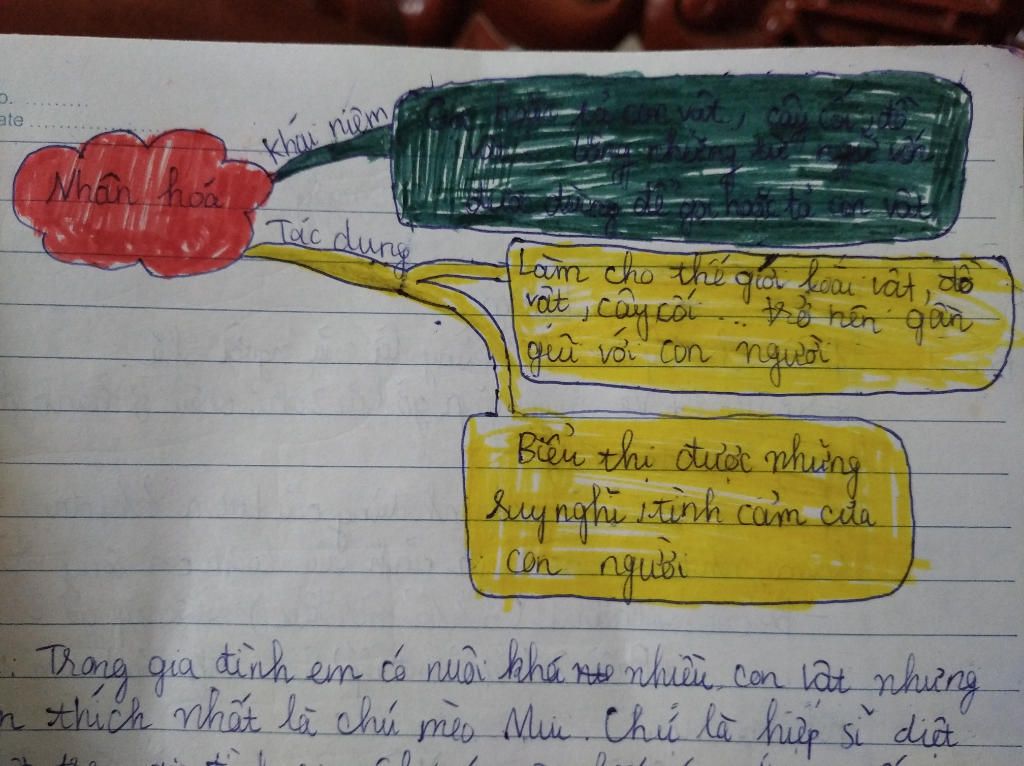 o. ..........
ate ..........
Nhân hóa
Khái niệm
tả con vật, cây cối, đồ
vật, bằng những từ ngữ vốn
được dùng để gọi hoặc tả con vật
Tác dụng
Làm cho thế giới loài vật, đồ
vật, cây cối ... trở nên gần
gũi với con người
Biểu thị được những
suy nghĩ, tình cảm của
con người
Trong gia đình em có nuôi khá nhiều con vật nhưng
thích nhất là chú mèo Miu. Chú là hiệp sĩ diệt